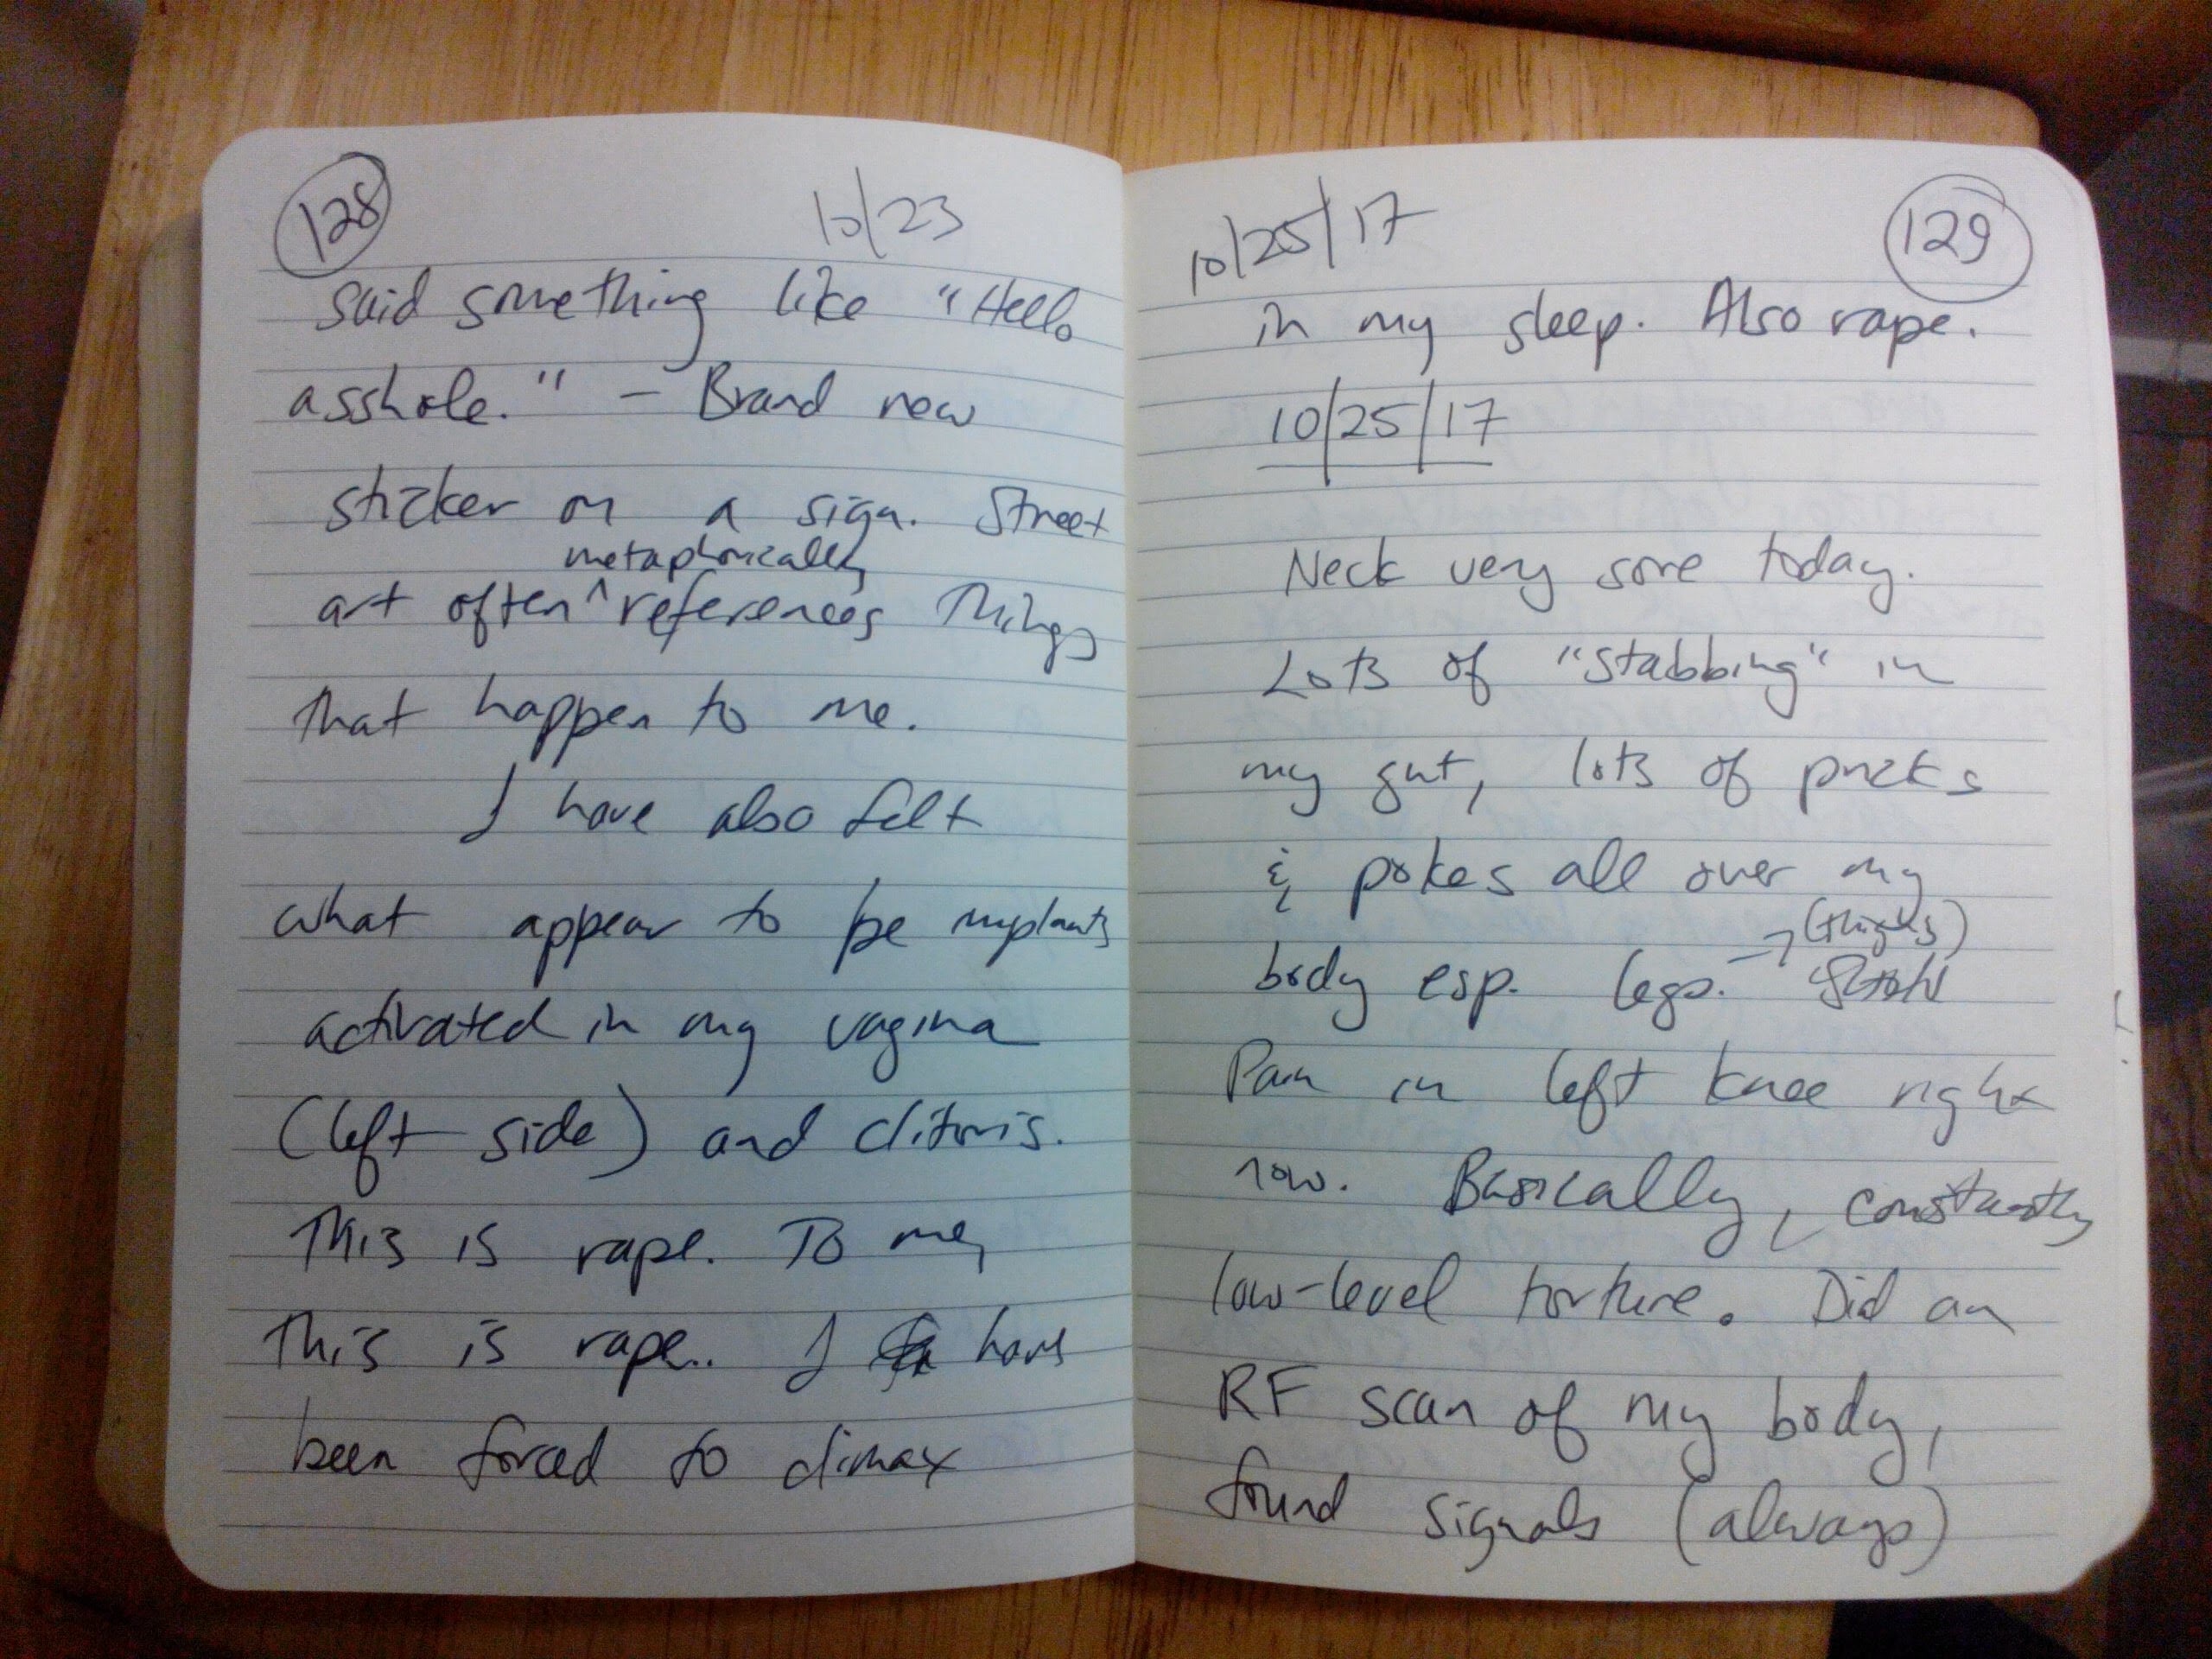 128
10/23
said something like "Hello
asshole." – Brand new
sticker on a sign. Street
metaphorically
art often ^ references things
that happen to me.
I have also felt
what appear to be implants
activated in my vagina
(left side) and clitoris.
This is rape. To me,
this is rape.. I have
been forced to climax
10/25/17
129
in my sleep. Also rape.
10/25/17
Neck very sore today.
Lots of "stabbing" in
my gut, lots of pricks
& pokes all over my
(thighs)
body esp. legs. →
Pain in left knee right
now. Basically, constantly
low-level torture. Did an
RF scan of my body,
found signals (always)